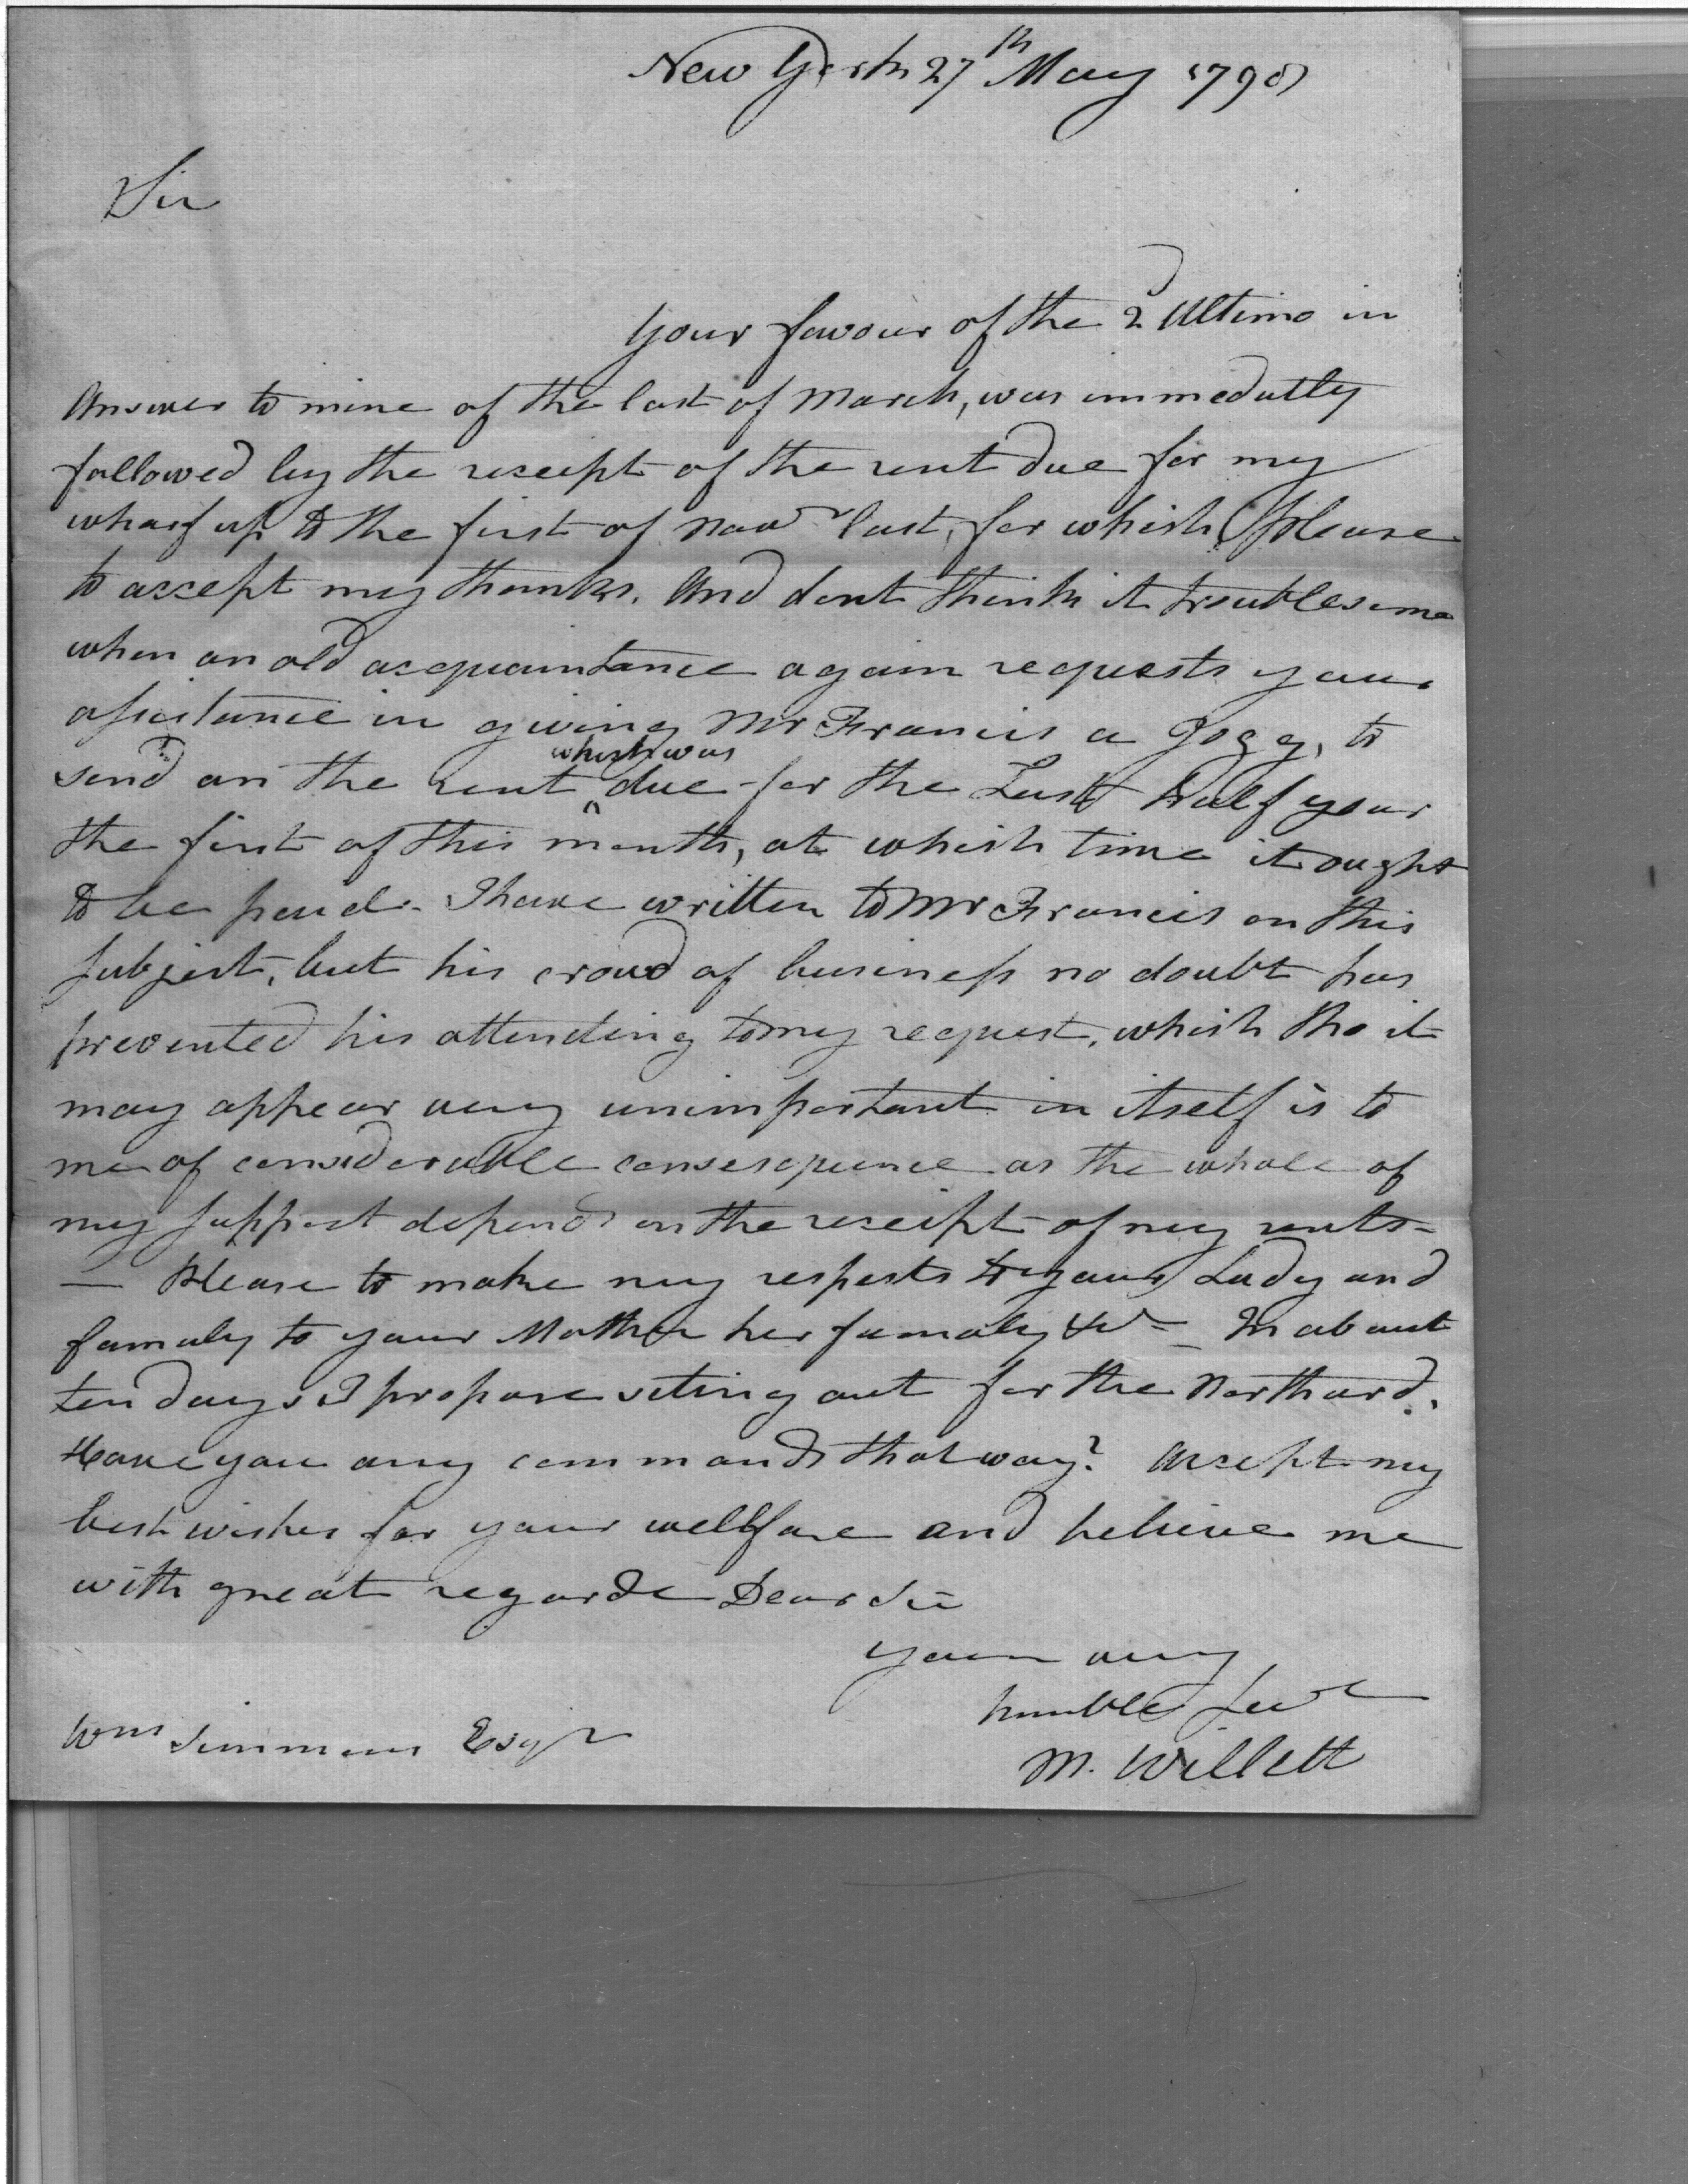 New York 27th May 1798
Sir
Your favour of the 2d Ultimo in
Answer to mine of the last of March, was immedatley
followed by the receipt of the rent due for my
wharf up to the first of Novr last, for which please
to accept my thanks. And dont think it troublesome
when an old acquaintance again requests your
assistance in giving Mr Francis a Jogg, to
send on the rent which was due for the Last half year
the first of this month, at which time it ought
to be paid. I have written to Mr Francis on this
subject, but his crowd of business no doubt has
prevented his attending to my request, which tho it
may appear very unimportant in itself is to
me of considerable consequence as the whole of
my support depends on the receipt of my rents-
— Please to make my respects to your Lady and
famaly to your Mother her famaly &c - In about
ten days I propose seting out for the Northard.
Have you any commands that way? Accept my
best wishes for your wellfare and believe me
with great regarde Dear Sir
your very
humble Servt
Wm Simmons Esqr
M. Willett